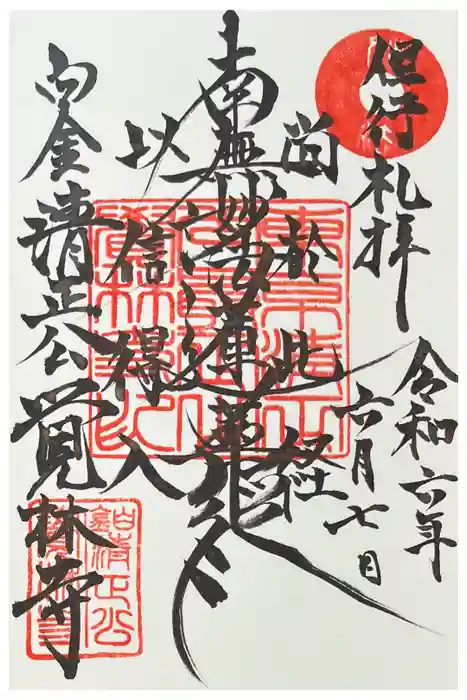 但行礼拝
令和六年
六月七日
尚於此経
南無妙法蓮華経
以信得入
白金清正公覚林寺